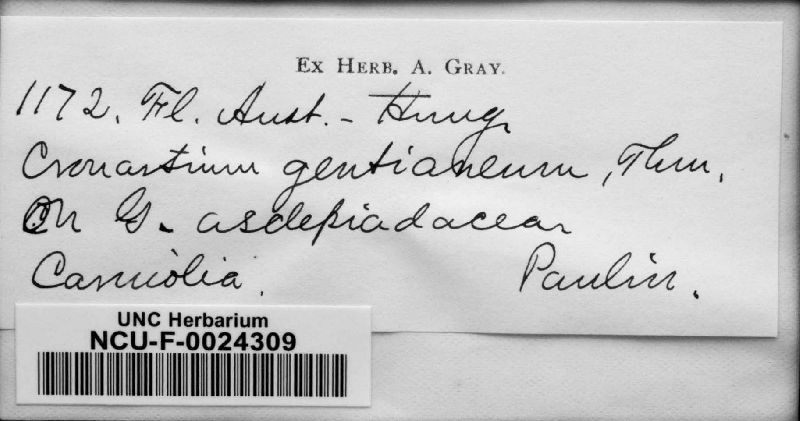 EX HERB. A. GRAY.
1172. Fl. Aust. - Hung.
Cronartium gentianeum, Thm.
On G. asclepiadaceae
Carniolia. Paulin.
UNC Herbarium
NCU-F-0024309